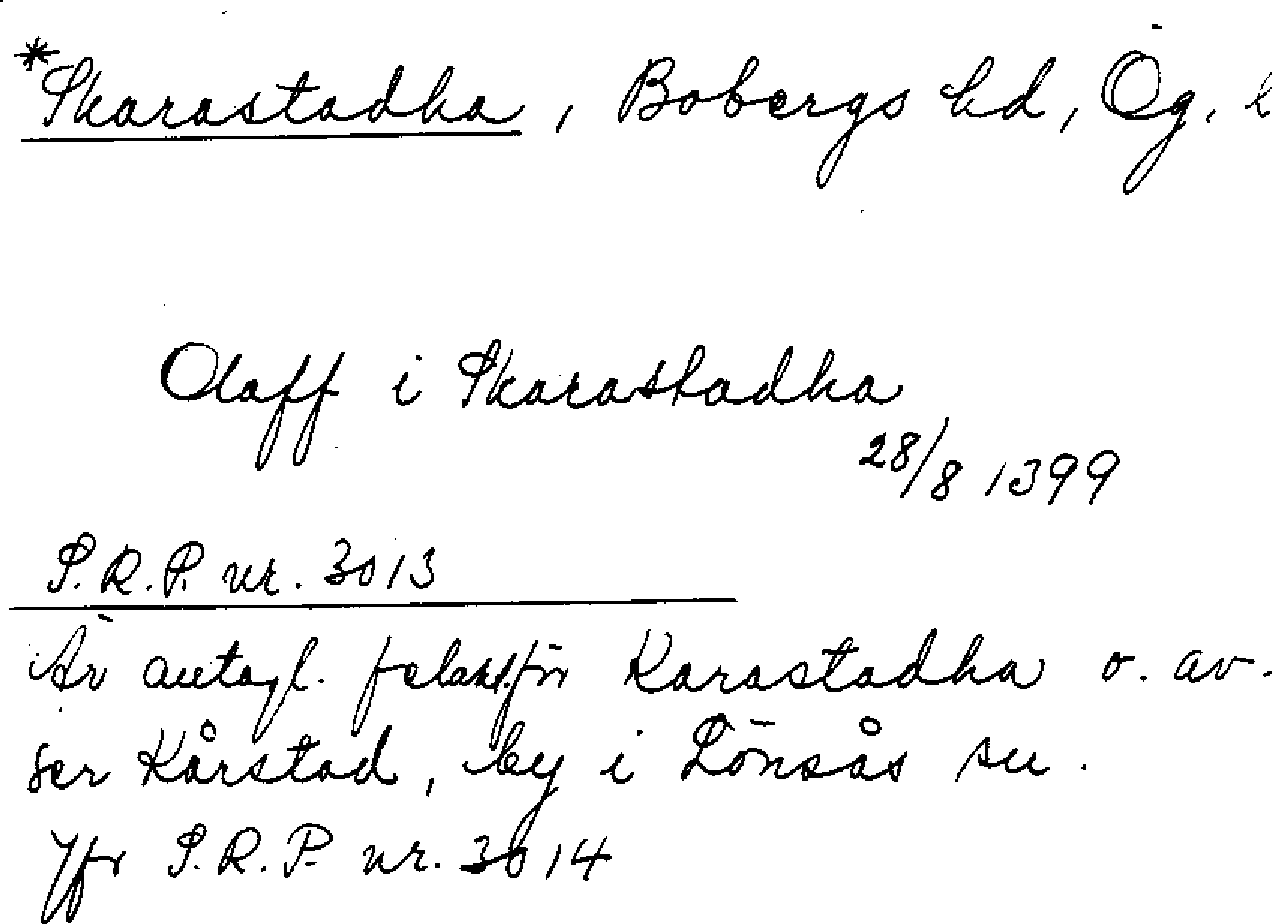 *Skarastadha, Bobergs hd, Ög. l
Olaff i Skarastadha
28/8 1399
S.R.P. nr. 3013
Är antagl. felakt. för Karastadha o. av-
ser Kårstad, by i Lönsås sn.
Jfr S.R.P. nr. 3014